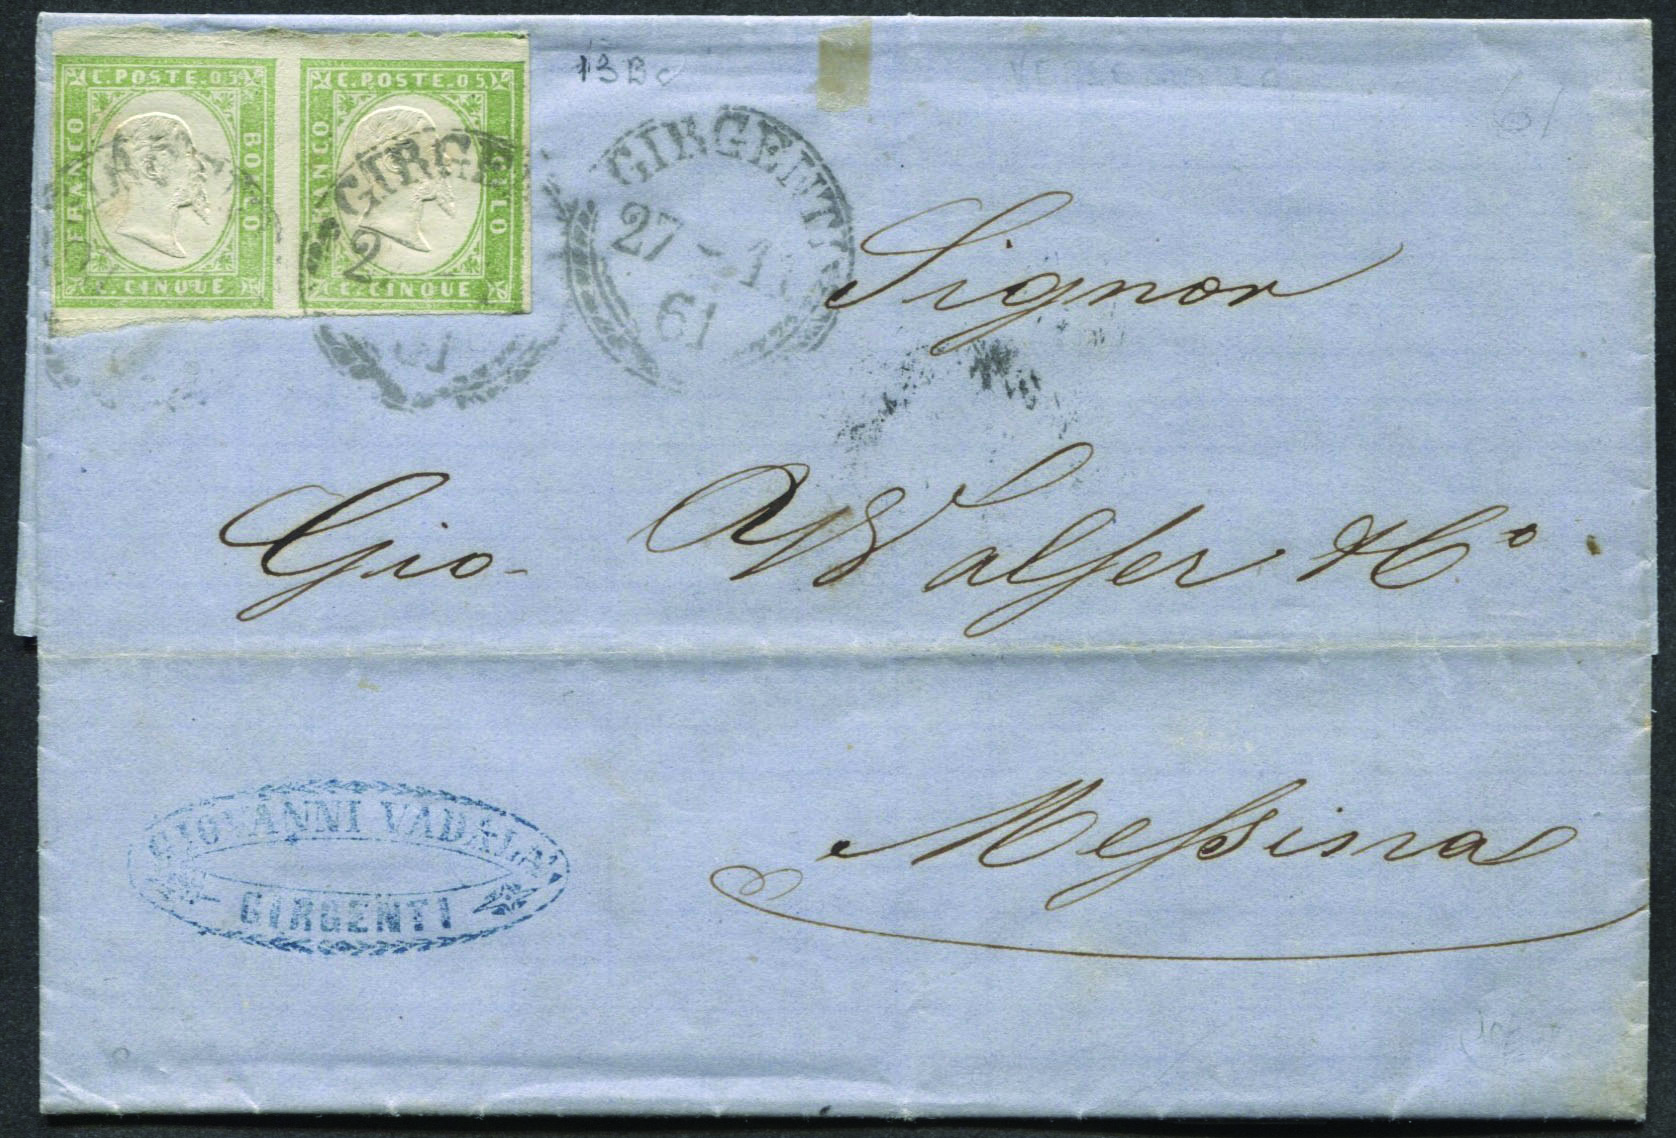 C. POSTE. 05
FRANCO
BOLLO
C. CINQUE
C. POSTE. 05
FRANCO
BOLLO
C. CINQUE
GIRGE
2
61
GIRGENTI
27
61
13Bc
61
Signor
Gio. Walser & Co
Messina
GIOVANNI VADALA'
GIRGENTI